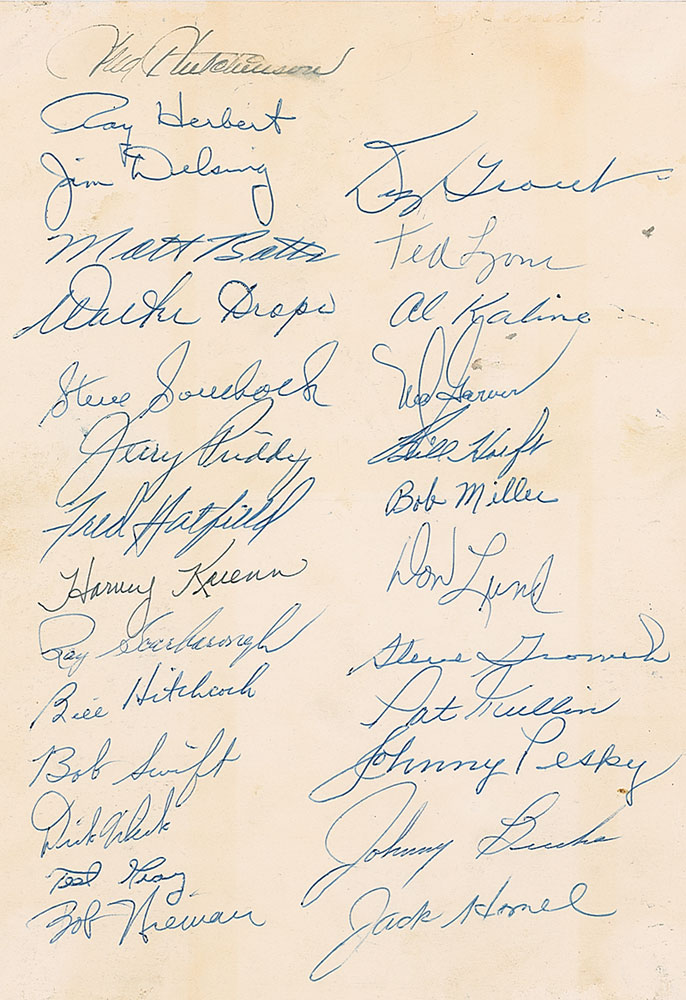 Fred Hutchinson
Ray Herbert
Jim Delsing
Matt Batts
Walter Dropo
Steve Souchock
Jerry Priddy
Fred Hatfield
Harvey Kuenn
Ray Scarborough
Bill Hitchcock
Bob Swift
Dick Weik
Ted Gray
Bob Nieman
Diz Trout
Ted Lyons
Al Kaline
Ned Garver
Bill Hoeft
Bob Miller
Don Lund
Steve Gromek
Pat Mullin
Johnny Pesky
Johnny Bucha
Jack Homel